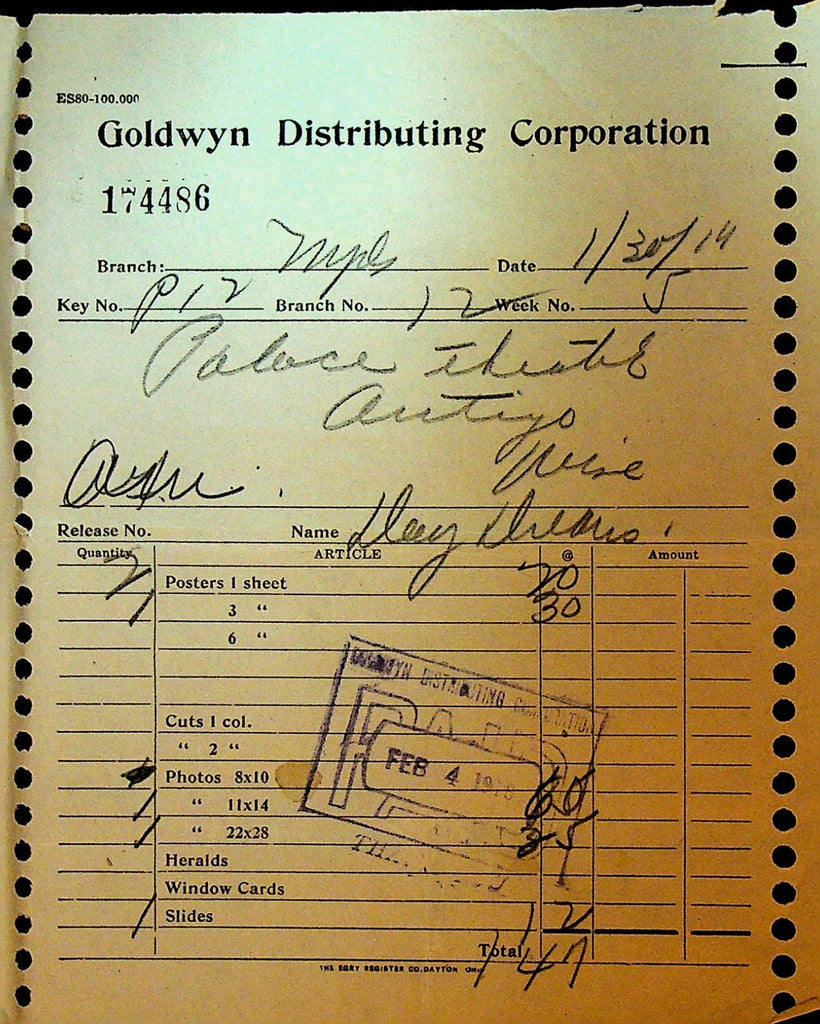 ES80-100.000
Goldwyn Distributing Corporation
174486
Branch: Mpls Date 1/30/19
Key No. P12 Branch No. 12 Week No. 5
Palace Theatre
Antigo
Wisc
Release No. Name Day Dreams
Quantity ARTICLE @ Amount
2 Posters 1 sheet 20
1 3 " 30
6 "
Cuts 1 col.
" 2 "
Photos 8x10
1 " 11x14 60
1 " 22x28 35
Heralds
Window Cards
1 Slides 12
Total 1 47
GOLDWYN DISTRIBUTING CORPORATION
PAID
FEB 4
THE EGRY REGISTER CO. DAYTON OHIO